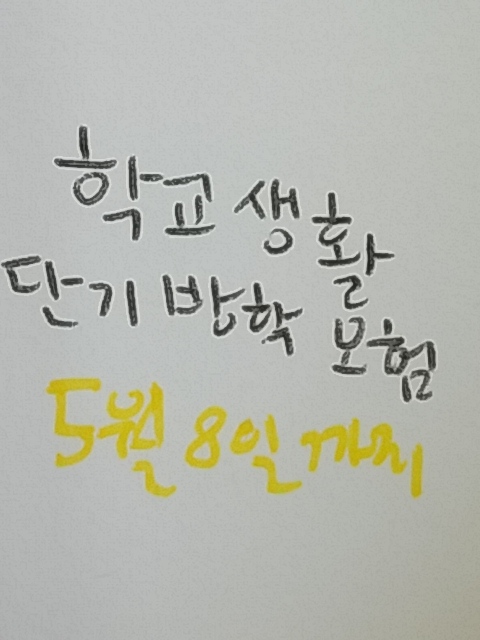 학교생활
단기방학 보험
5월 8일까지